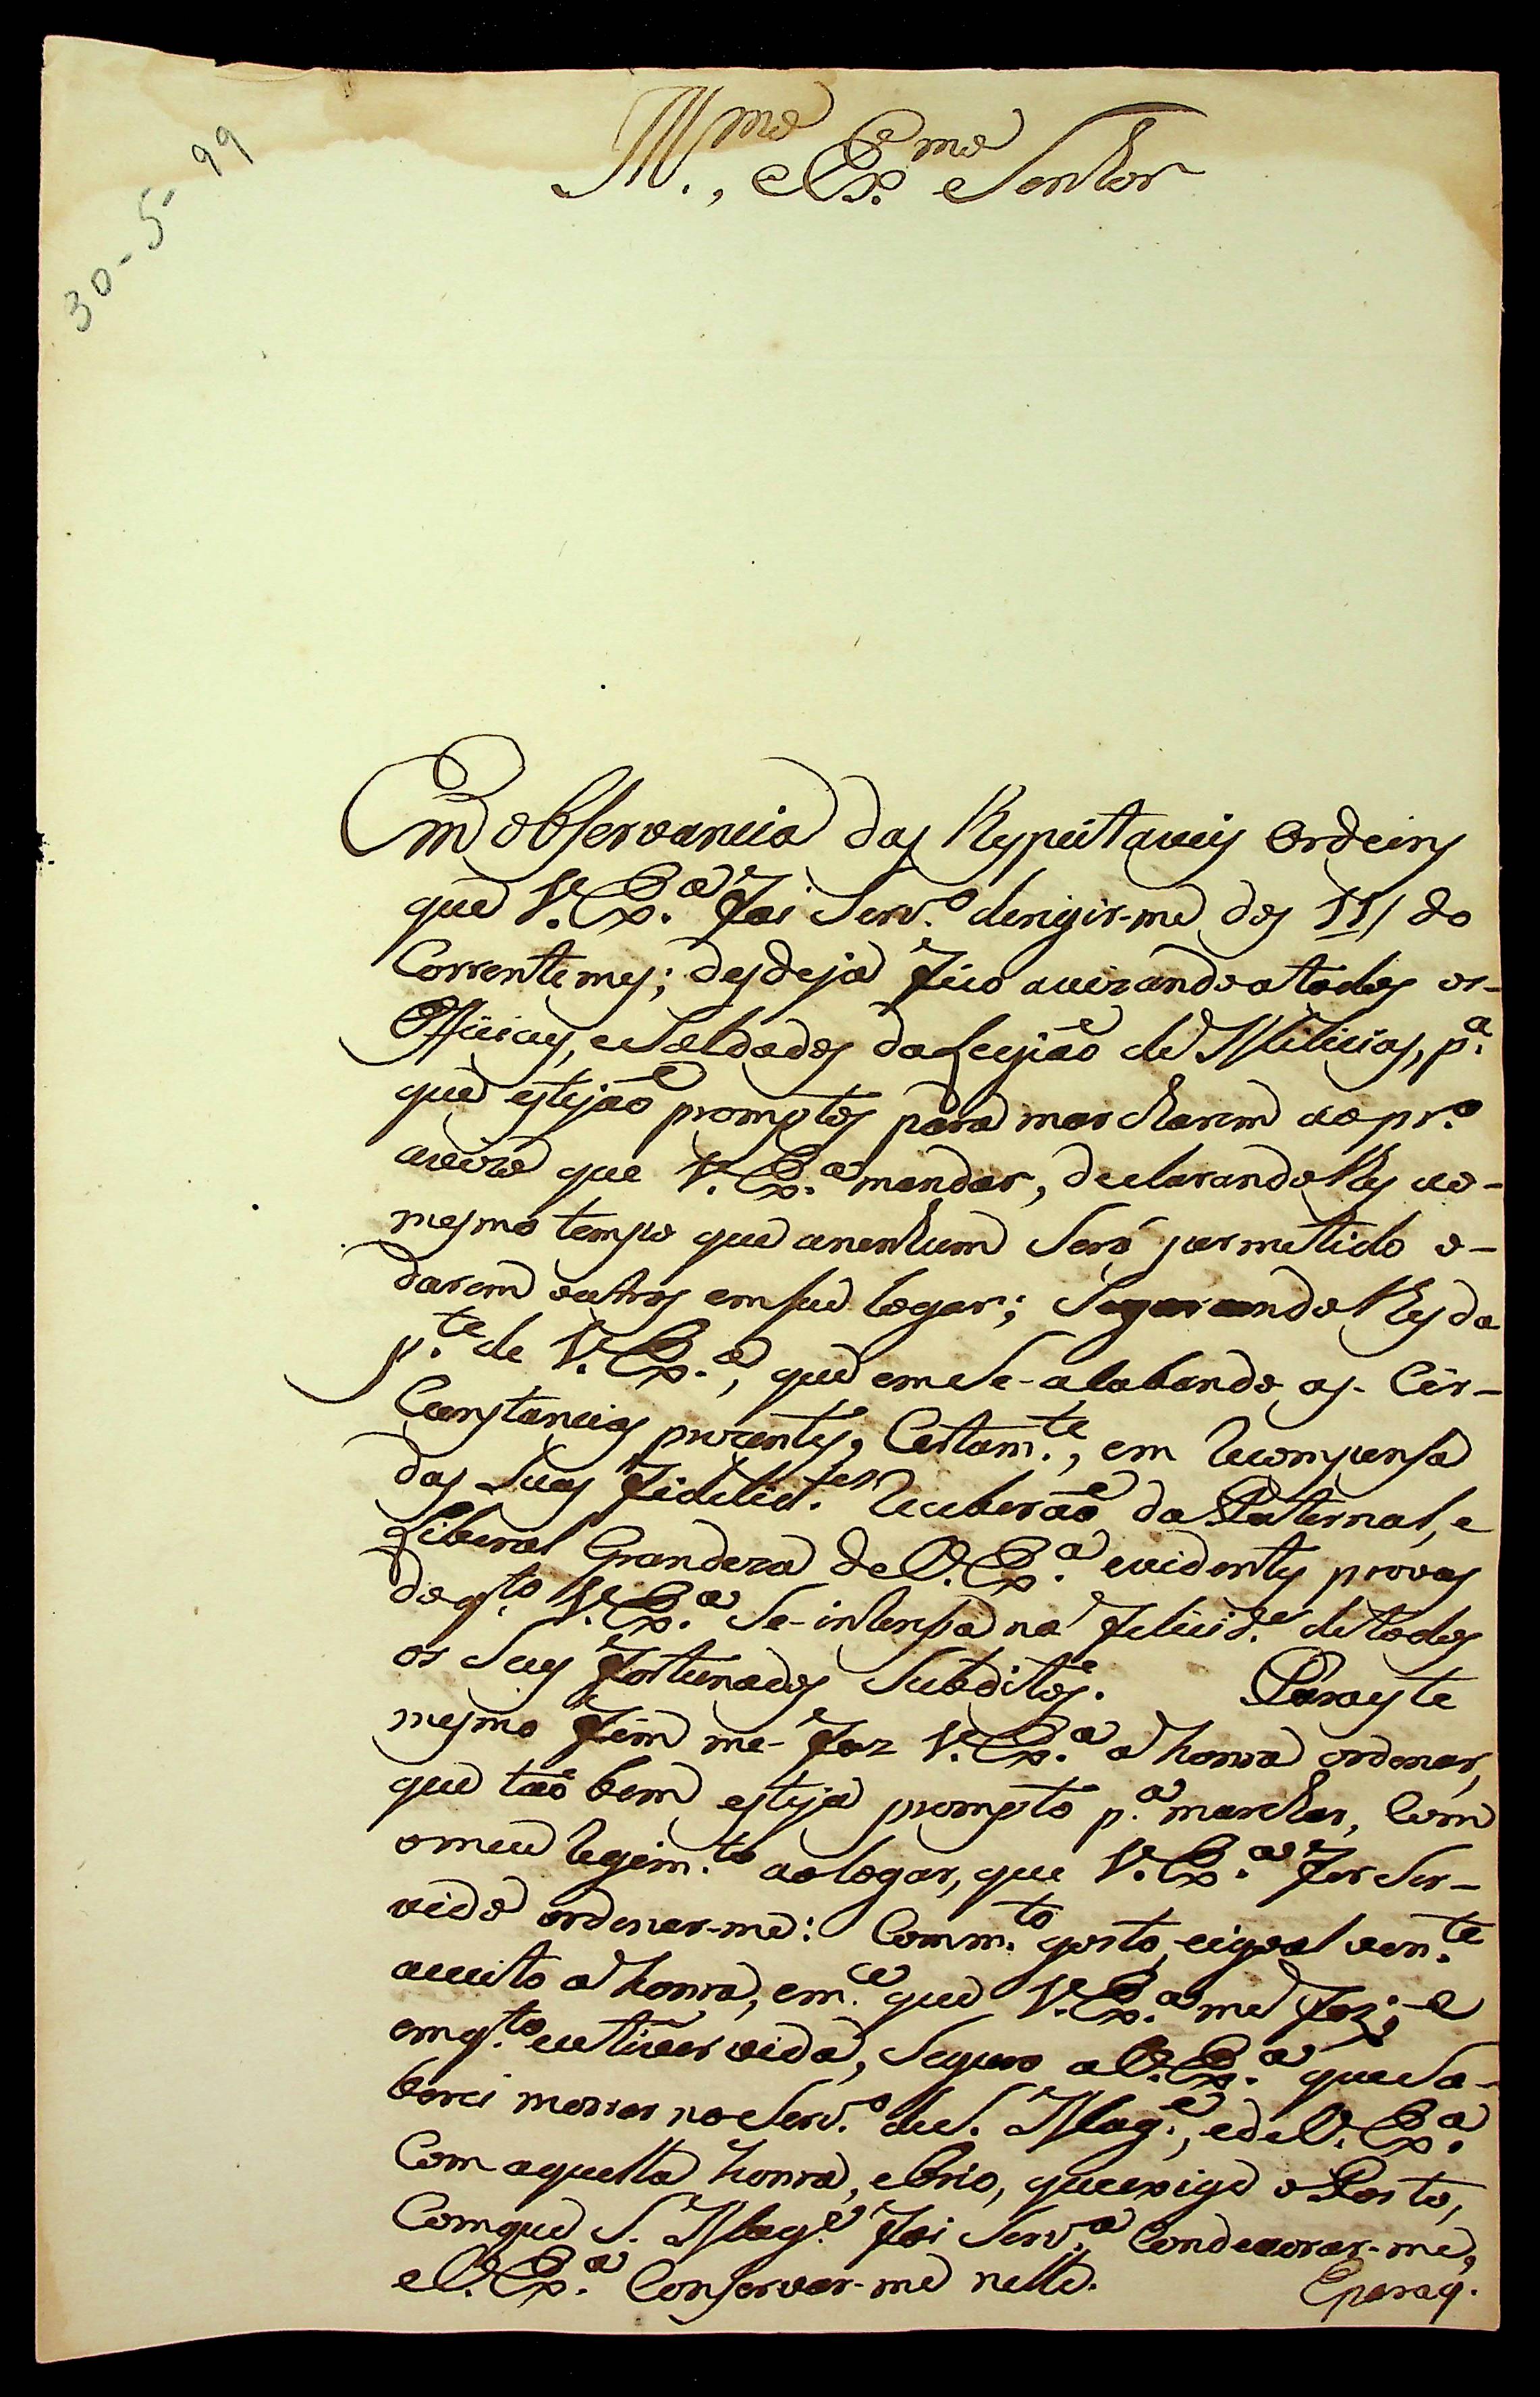 30-5-99
Ill.mo, e Ex.mo Senhor
Em observancia das Respeitaveis Ordeins
que V. Ex.a foi Serv.o derigir-me dos 11/ do
Corrente mes; desdeja fico avizando a todos os-
Officiaes, e Soldados da Legião de Milicias, p.a
que estejão promptos para marcharem ao pr.o
avizo que V. Ex.a mandar, declarandolhes ao-
mesmo tempo que anenhum Será permetido o-
darem outros em seu logar; Segurandolhes da
p.te de V. Ex.a, que em Se-alabando as Cir-
Cunstancias prezentes, Certam.te, em recompensa
das Suas fidelid.es receberão da Paternal, e
Liberal Grandeza de V. Ex.a evidentes provas
do q.to V. Ex.a Se-interessa na felicid.e de todos
os Seus fortunados Subditos. Para este
mesmo fim me-faz V. Ex.a a honra ordenar,
que tão bem esteja prompto p.a marchar, Com
o meu regim.to ao logar, que V. Ex.a for Ser-
vido ordenar-me: Com m.to gosto, eigoal von.te
aceito a honra, e m.ce que V. Ex.a me faz; e
emq.to eu tiver vida, Seguro a V. Ex.a que Sa-
berei morrer no Serv.o de S. Mag.e, e de V. Ex.a
Com aquella honra, e brio, que exige o Posto,
Com que S. Mag.e foi Serv.a Condecorar-me,
e V. Ex.a Conservar-me nelle.
E para q.